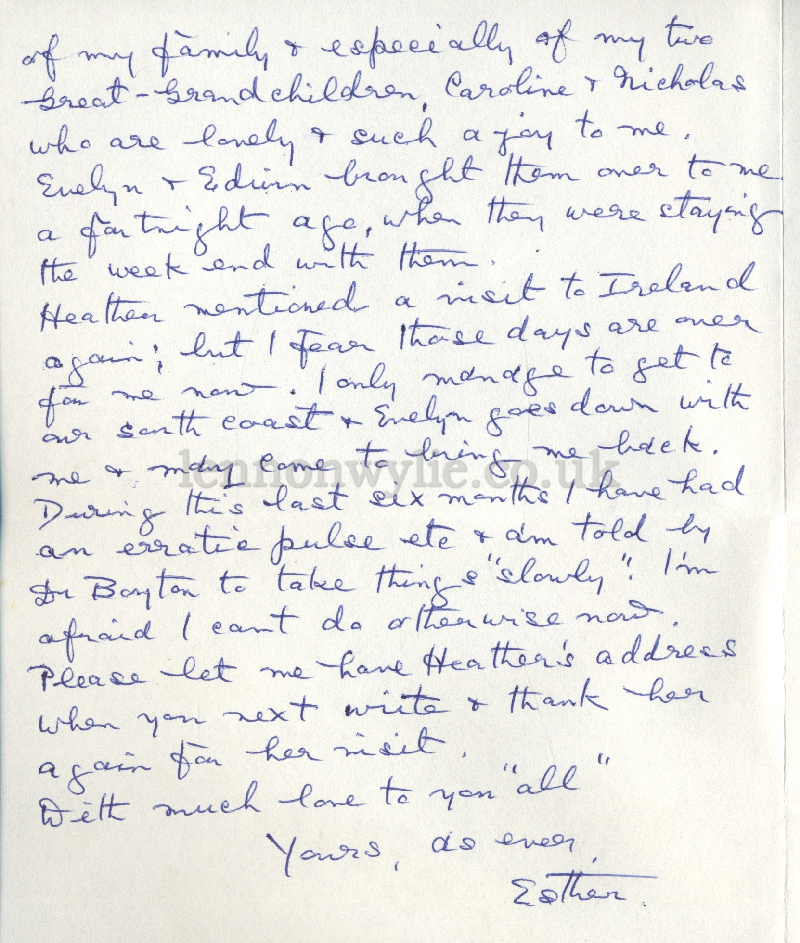 of my family & especially of my two
Great-Grandchildren, Caroline & Nicholas
who are lovely & such a joy to me.
Evelyn & Edwin brought them over to me
a fortnight ago, when they were staying
the week end with them.
Heather mentioned a visit to Ireland
again; but I fear those days are over
for me now. I only manage to get to
our south coast & Evelyn goes down with
me & may come to bring me back.
lennonwylie.co.uk
During this last six months I have had
an erratic pulse etc & am told by
Dr Boyton to take things "slowly". I'm
afraid I cant do otherwise now.
Please let me have Heather's address
when you next write & thank her
again for her visit.
With much love to you "all"
Yours, as ever,
Esther.